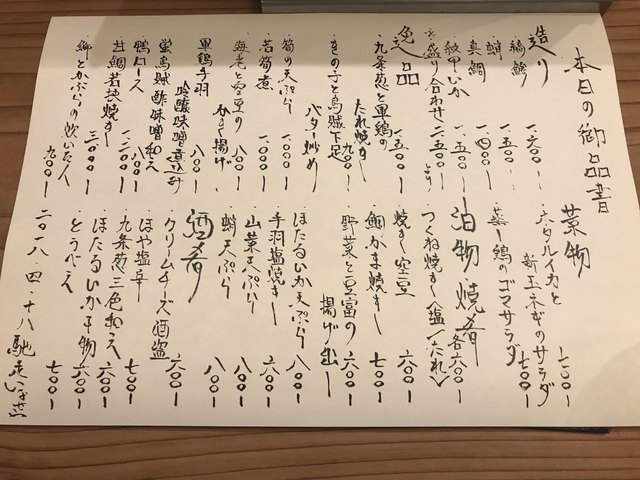 本日の御品書
造り
・縞鯵 一、六〇〇ー
・蛸 一、五〇〇ー
・真鯛 一、四〇〇ー
・紋甲いか 一、五〇〇ー
・盛り合わせ 二、五〇〇ーより
逸品
・九条葱と軍鶏の
たれ焼き 一、五〇〇ー
・きの子と烏賊下足
バター炒め 九〇〇ー
・筍の天ぷら 一、〇〇〇ー
・若筍煮 一、〇〇〇ー
・海老と空豆の
かき揚げ 八〇〇ー
・軍鶏手羽
吟醸味噌煮込み
・蛍烏賊酢味噌和え 八〇〇ー
・鴨ロース 一、二〇〇ー
・甘鯛若狭焼き 三、〇〇〇ー
・鰤とかぶらの炊いたん 九〇〇ー
菜物
・ホタルイカと
新玉ネギのサラダ 一、一〇〇ー
・蒸し鶏のゴマサラダ 七〇〇ー
泊物 焼肴
・つくね焼き〈塩〉〈たれ〉 各六〇〇ー
・焼き空豆 六〇〇ー
・鯛かま焼き 七〇〇ー
・野菜と豆富の
揚げ出し 六〇〇ー
・ほたるいか天ぷら 八〇〇ー
・手羽塩焼き 六〇〇ー
・山菜天ぷら 八〇〇ー
・蛸天ぷら 八〇〇ー
酒肴
・クリームチーズ酒盗 六〇〇ー
・ほや塩辛 六〇〇ー
・九条葱三色和え 六〇〇ー
・ほたるいか干物 六〇〇ー
・とうべえ 七〇〇ー
二〇一八・四・十八 馳走いなせ